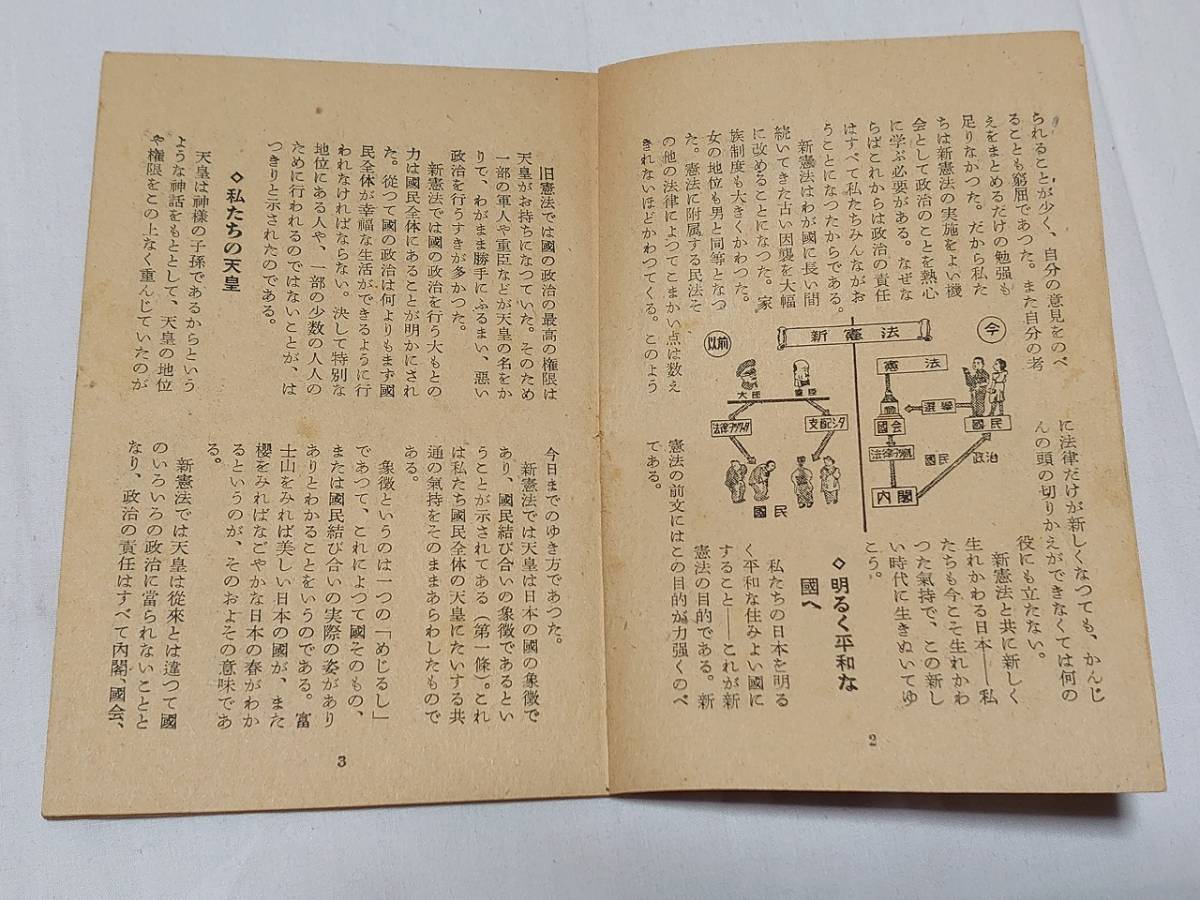 ちれることが少く、自分の意見をのべ
ることも窮屈であつた。また自分の考
えをまとめるだけの勉強も
足りなかつた。だから私た
ちは新憲法の実施をよい機
会として政治のことを熱心
に学ぶ必要がある。なぜな
らばこれからは政治の責任
はすべて私たちみんながお
うことになつたからである。
新憲法はわが國に長い間
続いてきた古い因襲を大幅
に改めることになつた。家
族制度も大きくかわつた。
女の地位も男と同等となつ
た。憲法に附属する民法そ
の他の法律によつてこまかい点は数え
きれないほどかわつてくる。このよう
新憲法
今
憲法
國会
選挙
國民
法律予算
國民政治
内閣
以前
大臣
重臣
法律ヲツクッタ
支配シタ
國民
に法律だけが新しくなつても、かんじ
んの頭の切りかえができなくては何の
役にも立たない。
新憲法と共に新しく
生れかわる日本――私
たちも今こそ生れかわ
つた氣持で、この新し
い時代に生きぬいてゆ
こう。
◇明るく平和な
國へ
私たちの日本を明る
く平和な住みよい國に
すること――これが新
憲法の目的である。新
憲法の前文にはこの目的が力强くのべ
である。
2
旧憲法では國の政治の最高の権限は
天皇がお持ちになつていた。そのため
一部の軍人や重臣などが天皇の名をか
りて、わがまま勝手にふるまい、悪い
政治を行うすきが多かつた。
新憲法では國の政治を行う大もとの
力は國民全体にあることが明かにされ
た。從つて國の政治は何よりもまず國
民全体が幸福な生活ができるように行
われなければならない。決して特別な
地位にある人や、一部の少数の人人の
ために行われるのではないことが、は
つきりと示されたのである。
◇私たちの天皇
天皇は神様の子孫であるからという
ような神話をもととして、天皇の地位
や権限をこの上なく重んじていたのが
今日までのゆき方であつた。
新憲法では天皇は日本の國の象徴で
あり、國民結び合いの象徴であるとい
うことが示されてある(第一條)。これ
は私たち國民全体の天皇にたいする共
通の氣持をそのままあらわしたもので
ある。
象徴というのは一つの「めじるし」
であつて、これによつて國そのもの、
または國民結び合いの実際の姿があり
ありとわかることをいうのである。富
士山をみれば美しい日本の國が、また
櫻をみればなごやかな日本の春がわか
るというのが、そのおよその意味であ
る。
新憲法では天皇は從來とは違つて國
のいろいろの政治に当られないことと
なり、政治の責任はすべて内閣、國会、
3